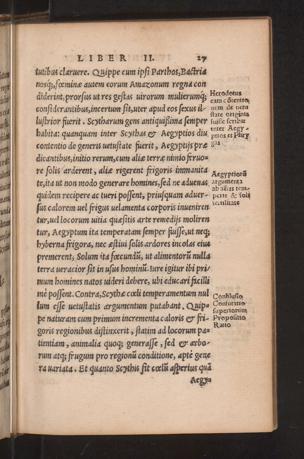 LIBER II. 27
tutibus claruere. Quippe cum ipsi Parthos, Bactria
nosq;, fœminæ autem eorum Amazonum regna con
diderint, prorsus ut res gestas uirorum mulierumq;
considerantibus, incertum sit, uter apud eos sexus il-
lustrior fuerit. Scytharum gens antiquissima semper
habita: quanquam inter Scythas & Aegyptios diu
contentio de generis uetustate fuerit, Aegyptijs præ
dicantibus, initio rerum, cum aliæ terræ nimio feruo-
re solis arderent, aliæ rigerent frigoris immanita
te, ita ut non modo generare homines, sed ne aduenas
quidem recipere ac tueri possent, priusquam aduer-
sus calorem uel frigus uelamenta corporis inuenirent
tur, uel locorum uitia quæsitis arte remedijs molliren
tur, Aegyptum ita temperatam semper fuisse, ut neq;
hyberna frigora, nec æstiui solis ardores incolas eius
premerent, Solum ita fœcundũ, ut alimentorũ nulla
terra feracior sit in usus hominũ. Iure igitur ibi pri-
mum homines natos uideri debere, ubi educari facilli
me possent. Contra, Scythæ cœli temperamentum nul
lum esse uetustatis argumentum putabant. Quip-
pe naturam cum primum incrementa caloris & fri-
goris regionibus distinxerit, statim ad locorum pa-
tientiam, animalia quoq; generasse, sed & arbo-
rum atq; frugum pro regionũ conditione, aptè gene
ra uariata. Et quanto Scythis sit cœlũ asperius quã
Aegy-
Herodotus
nem de uetu
fuisse scribit
inter Aegy-
ptios et Phry
gas
Aegyptiorũ
argumenta
ab aëris tem-
perie & soli
Confutatio
Propositio
Ratio